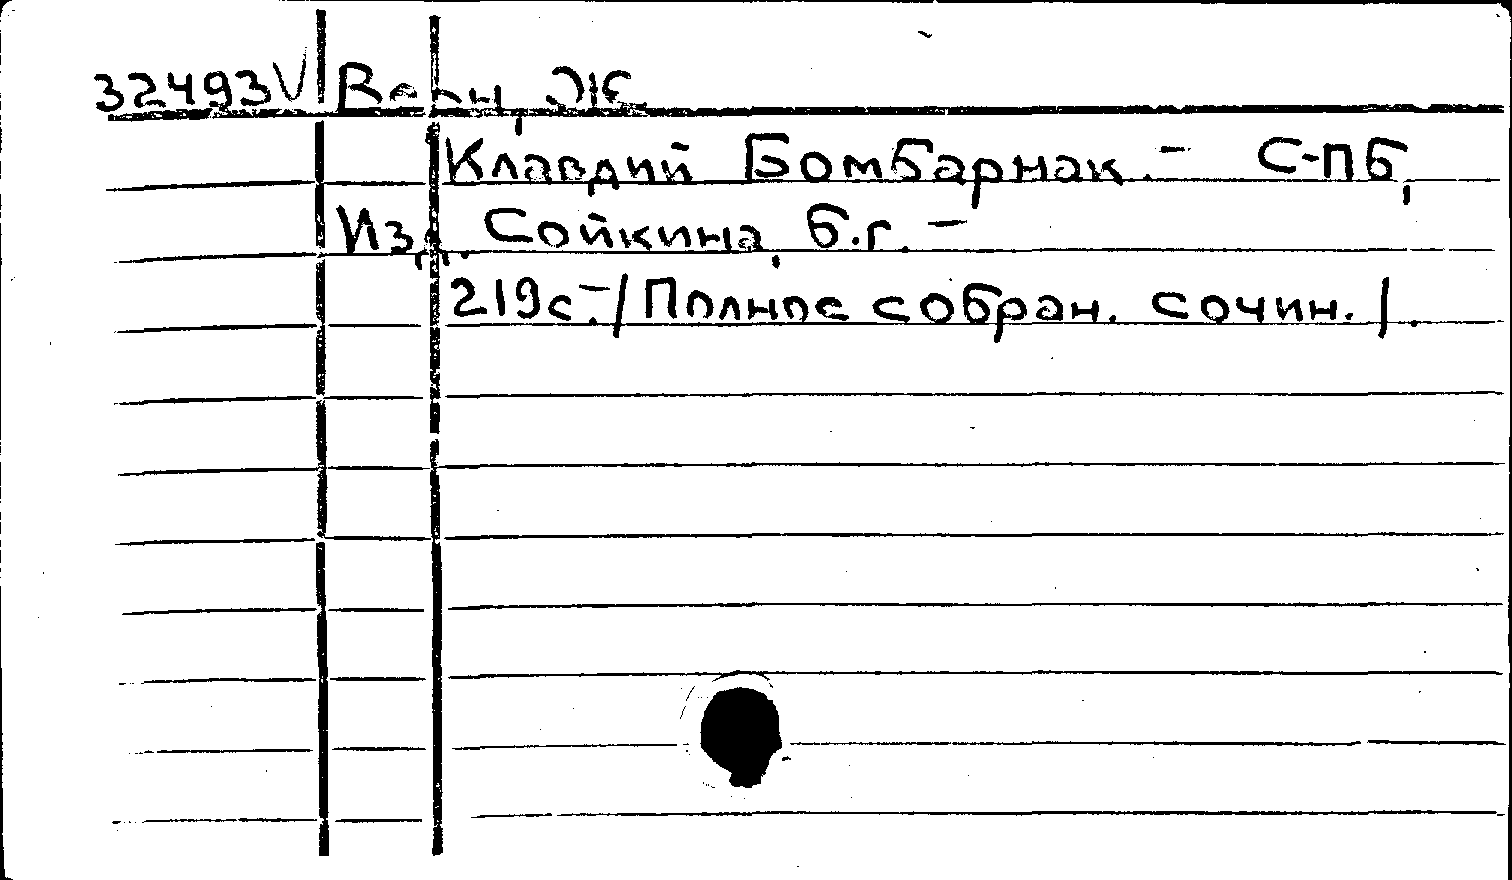 32493V Верн, Ж.
Клавдий Бомбарнак. - С-ПБ,
Изд. Сойкина, б.г. -
219с. - /Полное собран. сочин./.